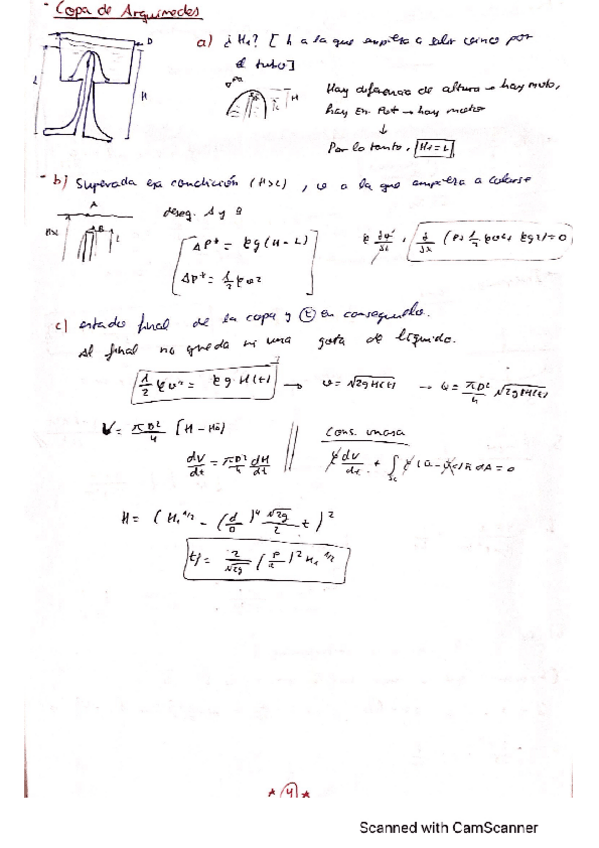 - Copa de Arquimedes
D
L
H
a) ¿H₁? [ h a la que empieza a salir por
el tubo]
Hay diferencia de altura → hay movto,
hay En Pot → hay movto
↓
Por lo tanto, H₁ = L
- b) Superada esa condición (H>L), v a la que empieza a
A
B
H>L
L
deseq. A y B
ΔP* = ρg(H-L)
ΔP* = 1/2 ρv²
c) estado final de la copa y t en conseguirlo.
Al final no queda ni una gota de líquido.
1/2 ρv² = ρg·H(t) → v = √2gH(t) → Q = πD²/4 √2gH(t)
V = πD²/4 [H - H₀]
dV/dt = πD²/4 dH/dt
Cons. masa
H = (H₁^1/2 - (d/D)^4 √2g/2 t)²
tf = 2/√2g (D/d)² H₁^1/2
* 4 *
Scanned with CamScanner